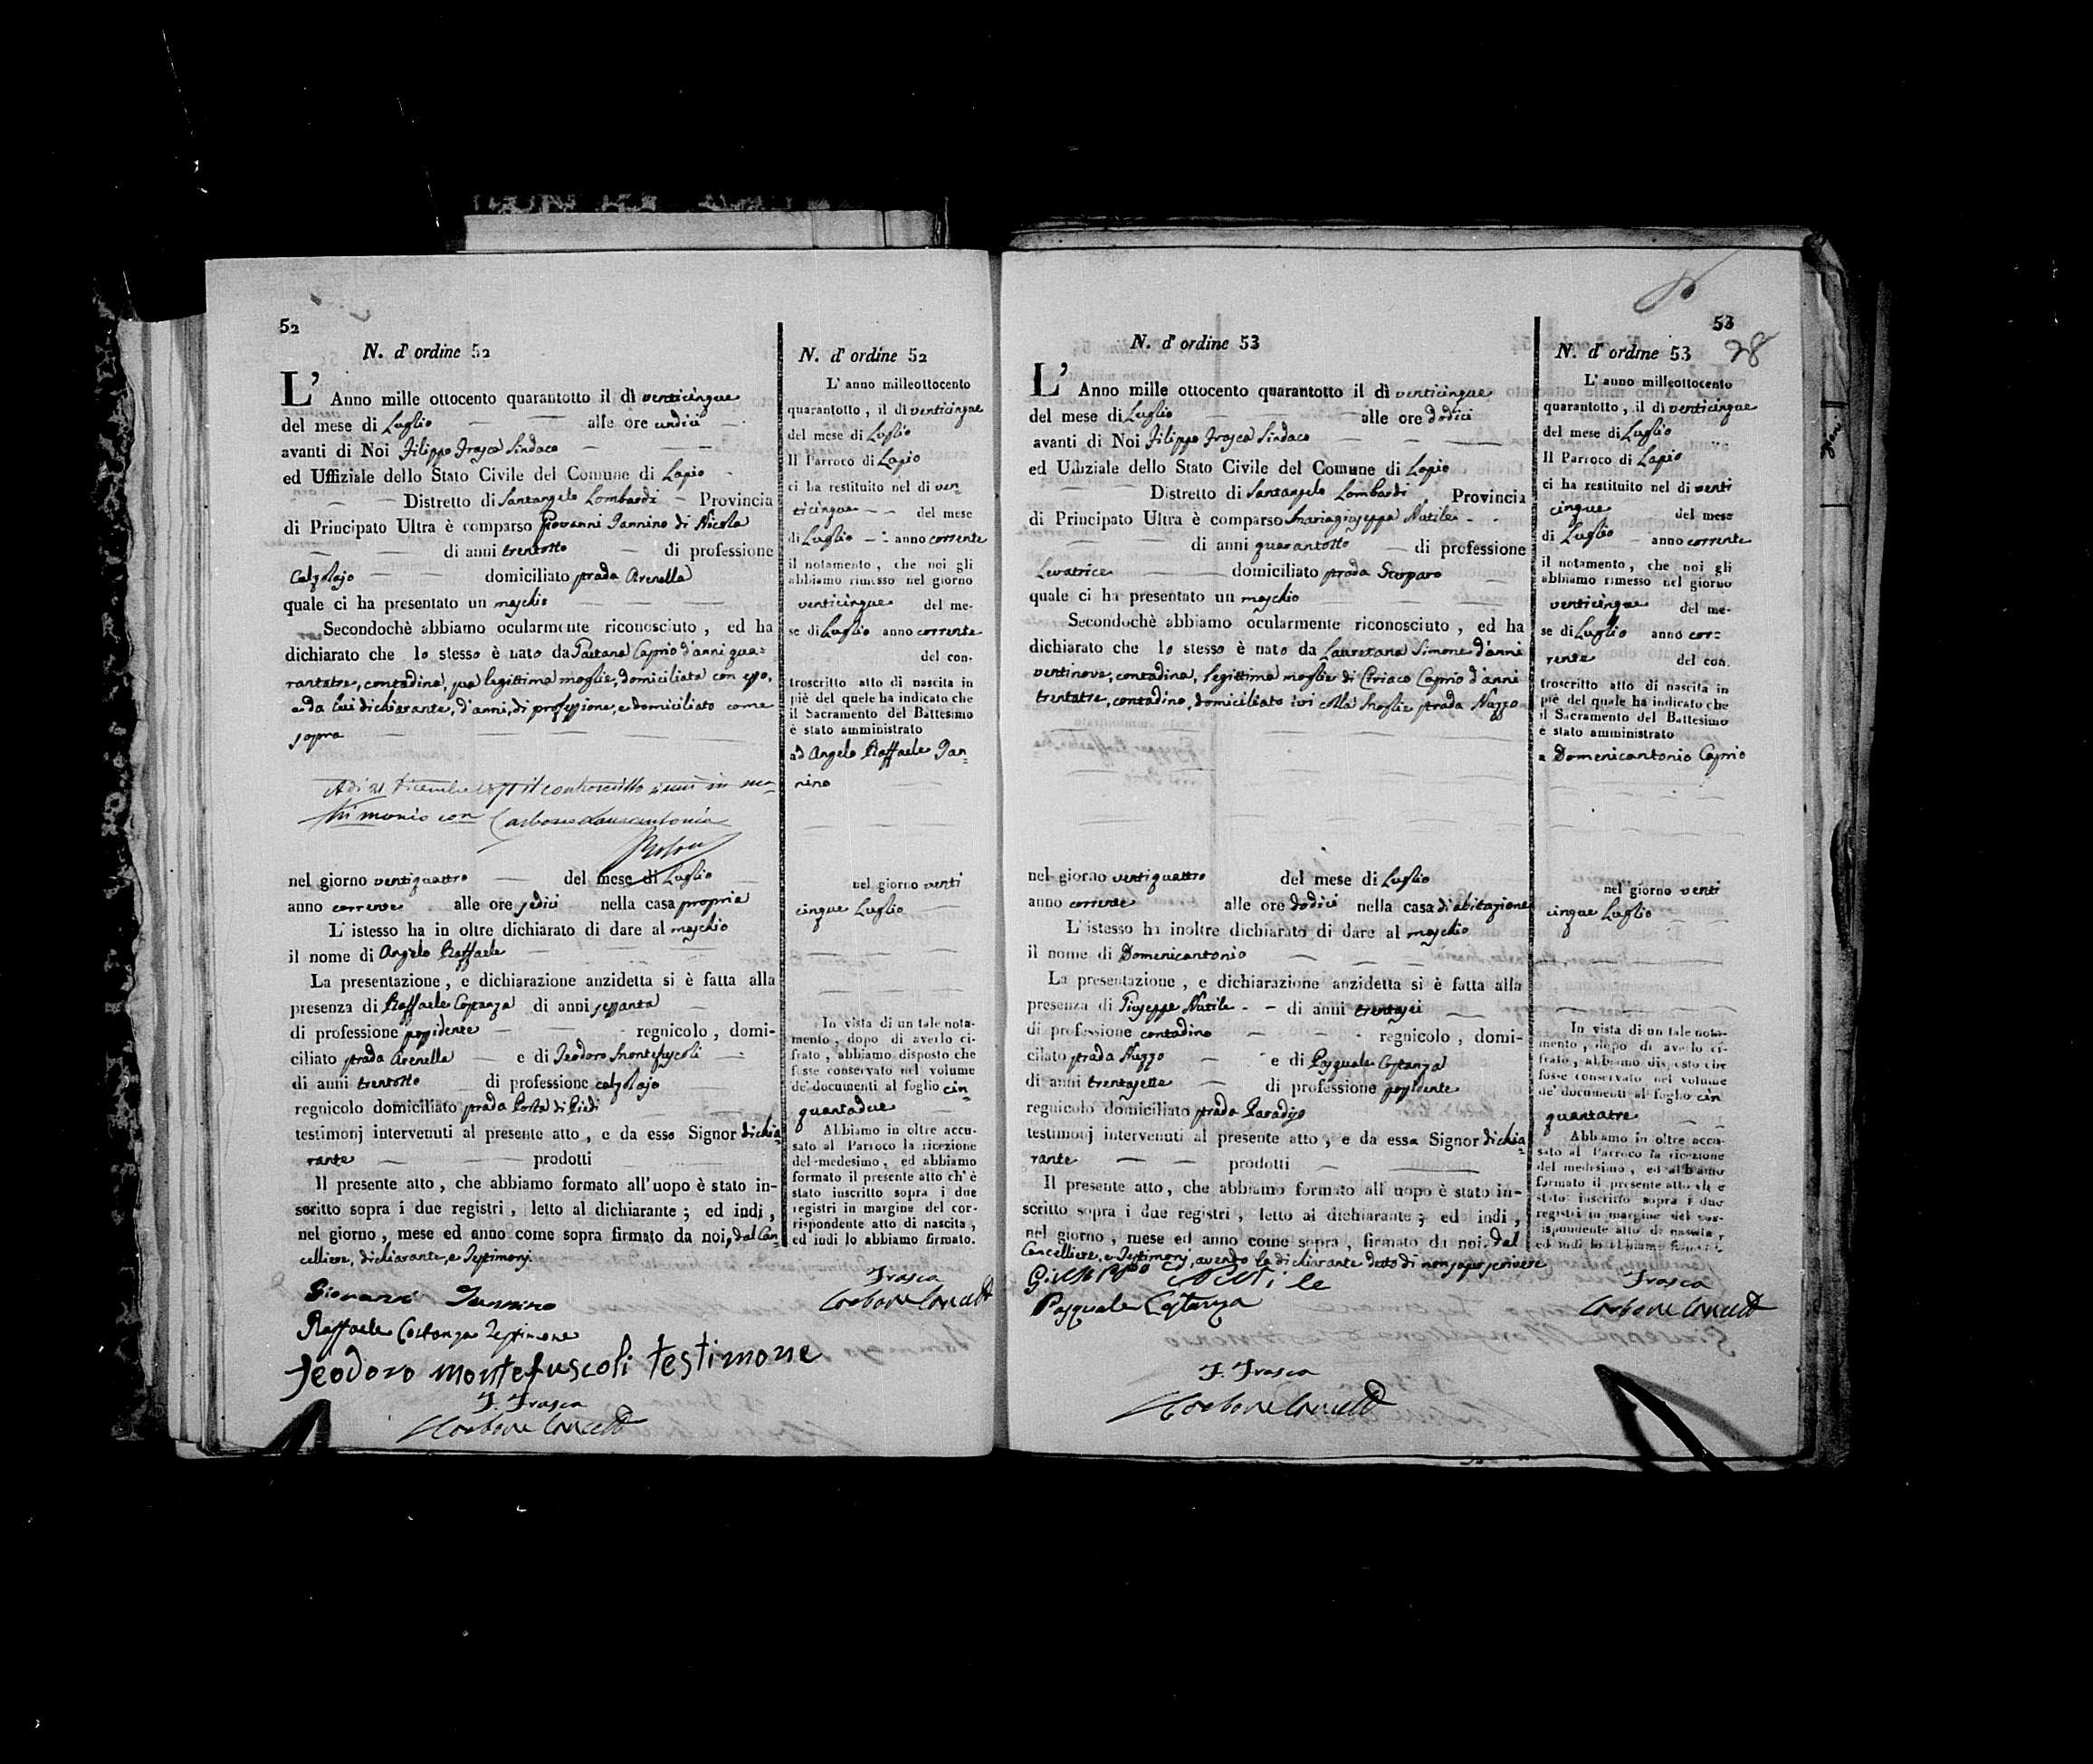 52
N. d' ordine 52
L' Anno mille ottocento quarantotto il dì venticinque
del mese di Luglio alle ore undici
avanti di Noi Filippo Frasca Sindaco
ed Uffiziale dello Stato Civile del Comune di Lapio
Distretto di Santangelo Lombardi Provincia
di Principato Ultra è comparso Giovanni Iannino di Nicola
di anni trentotto di professione
Calzolajo domiciliato strada Arenella
quale ci ha presentato un maschio
Secondochè abbiamo ocularmente riconosciuto, ed ha
dichiarato che lo stesso è nato da Gaetana Caprio d'anni qua=
rantatre, contadina, sua legittima moglie, domiciliata con esso,
e da lui dichiarante, d'anni, di professione, e domiciliato come
sopra
Adì 21 Dicembre il controscritto si unì in ma-
trimonio con Carbone
nel giorno ventiquattro del mese di Luglio
anno corrente alle ore sedici nella casa propria
L' istesso ha in oltre dichiarato di dare al maschio
il nome di Angelo Raffaele
La presentazione, e dichiarazione anzidetta si è fatta alla
presenza di Raffaele Costanza di anni sessanta
di professione possidente regnicolo, domi-
ciliato strada Arenella e di Teodoro Montefuscoli
di anni trentotto di professione calzolajo
regnicolo domiciliato strada Porta di Piedi
testimonj intervenuti al presente atto, e da esso Signor dichia
rante prodotti
Il presente atto, che abbiamo formato all'uopo è stato in-
scritto sopra i due registri, letto al dichiarante; ed indi,
nel giorno, mese ed anno come sopra firmato da noi, dal Can-
celliere, dichiarante, e Testimonj.
Giovanni Iannino
Raffaele Costanza Testimone
Teodoro montefuscoli testimone
F. Frasca
Carbone Cancell
N. d' ordine 52
L' anno milleottocento
quarantotto, il dì venticinque
del mese di Luglio
Il Parroco di Lapio
ci ha restituito nel dì ven-
ticinque del mese
di Luglio anno corrente
il notamento, che noi gli
abbiamo rimesso nel giorno
venticinque del me-
se di Luglio anno corrente
del con-
troscritto atto di nascita in
piè del quele ha indicato che
il Sacramento del Battesimo
è stato amministrato
ad Angelo Raffaele Ian-
nino
nel giorno venti
cinque Luglio
In vista di un tale nota-
mento, dopo di averlo ci-
frato, abbiamo disposto che
fosse conservato nel volume
de' documenti al foglio cin-
quantadue
Abbiamo in oltre accu-
sato al Parroco la ricezione
del medesimo, ed abbiamo
formato il presente atto ch' è
stato inscritto sopra i due
registri in margine del cor-
rispondente atto di nascita,
ed indi lo abbiamo firmato.
Frasca
Carbone Cancell
53
28
N. d' ordine 53
L' Anno mille ottocento quarantotto il dì venticinque
del mese di Luglio alle ore dodici
avanti di Noi Filippo Frasca Sindaco
ed Uffiziale dello Stato Civile del Comune di Lapio
Distretto di Santangelo Lombardi Provincia
di Principato Ultra è comparso Mariagiuseppa Nutile
di anni quarantotto di professione
Levatrice domiciliato strada Scarparo
quale ci ha presentato un maschio
Secondochè abbiamo ocularmente riconosciuto, ed ha
dichiarato che lo stesso è nato da Lauretana Simone d'anni
ventinove, contadina, legittima moglie di Ciriaco Caprio d'anni
trentatre, contadino, domiciliato ivi colla Moglie strada Nuzzo
nel giorno ventiquattro del mese di Luglio
anno corrente alle ore dodici nella casa di abitazione
L' istesso ha inoltre dichiarato di dare al maschio
il nome di Domenicantonio
La presentazione, e dichiarazione anzidetta si è fatta alla
presenza di Giuseppe Nutile di anni trentasei
di professione contadino regnicolo, domi-
cilato strada Nuzzo e di Pasquale Costanza
di anni trentasette di professione possidente
regnicolo domiciliato strada Paradiso
testimonj intervenuti al presente atto, e da essa Signor dichia
rante prodotti
Il presente atto, che abbiamo formato all' uopo è stato in-
scritto sopra i due registri, letto al dichiarante; ed indi,
nel giorno, mese ed anno come sopra, firmato da noi, dal
Cancelliere, e Testimonj, avendo la dichiarante detto di non saper scrivere
Giuseppo Nutile
Pasquale Costanza
F. Frasca
Carbone Cancell
N. d' ordine 53
L' anno milleottocento
quarantotto, il dì venticinque
del mese di Luglio
Il Parroco di Lapio
ci ha restituito nel di venti
cinque del mese
di Luglio anno corrente
il notamento, che noi gli
abbiamo rimesso nel giorno
venticinque del me-
se di Luglio anno cor=
rente del con-
troscritto atto di nascita in
piè del quele ha indicato che
il Sacramento del Battesimo
è stato amministrato
a Domenicantonio Caprio
nel giorno venti
cinque Luglio
In vista di un tale nota-
mento, dopo di averlo ci-
frato, abbiamo disposto che
fosse conservato nel volume
de' documenti al foglio cin
quantatre
Abbiamo in oltre accu-
sato al Parroco la ricezione
del medesimo, ed abbiamo
formato il presente atto ch' è
stato inscritto sopra i due
registri in margine del cor-
rispondente atto di nascita,
ed indi lo abbiamo firmato.
Frasca
Carbone Cancell